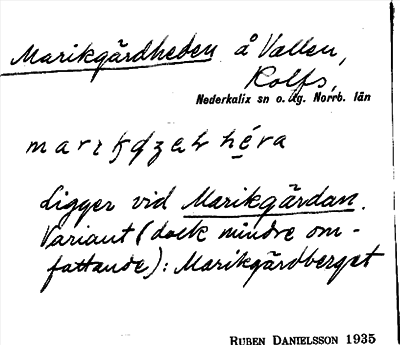 Marikgårdheden å Vallen,
Kolfs,
Nederkalix sn o. dg. Norrb. län
Ligger vid Marikgårdan.
Variant (dock mindre om-
fattande): Marikgårdberget
RUBEN DANIELSSON 1935